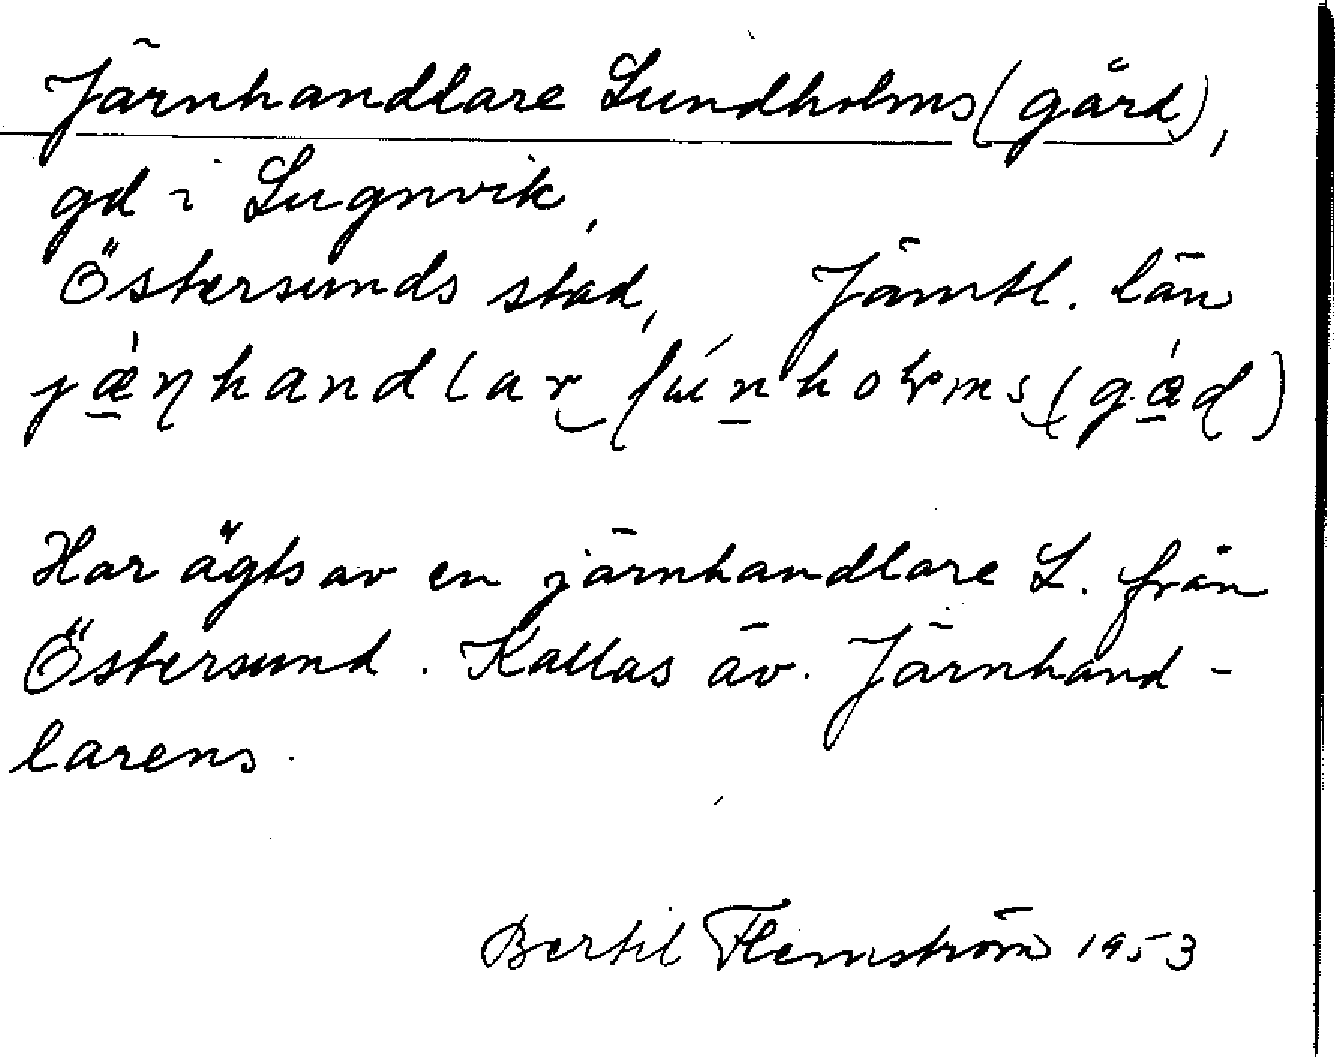 Järnhandlare Lundholms (gård),
gd i Lugnvik,
Östersunds stad, Jämtl. län
Har ägts av en järnhandlare L. från
Östersund. Kallas äv. Järnhand-
larens.
Bertil Flemström 1953